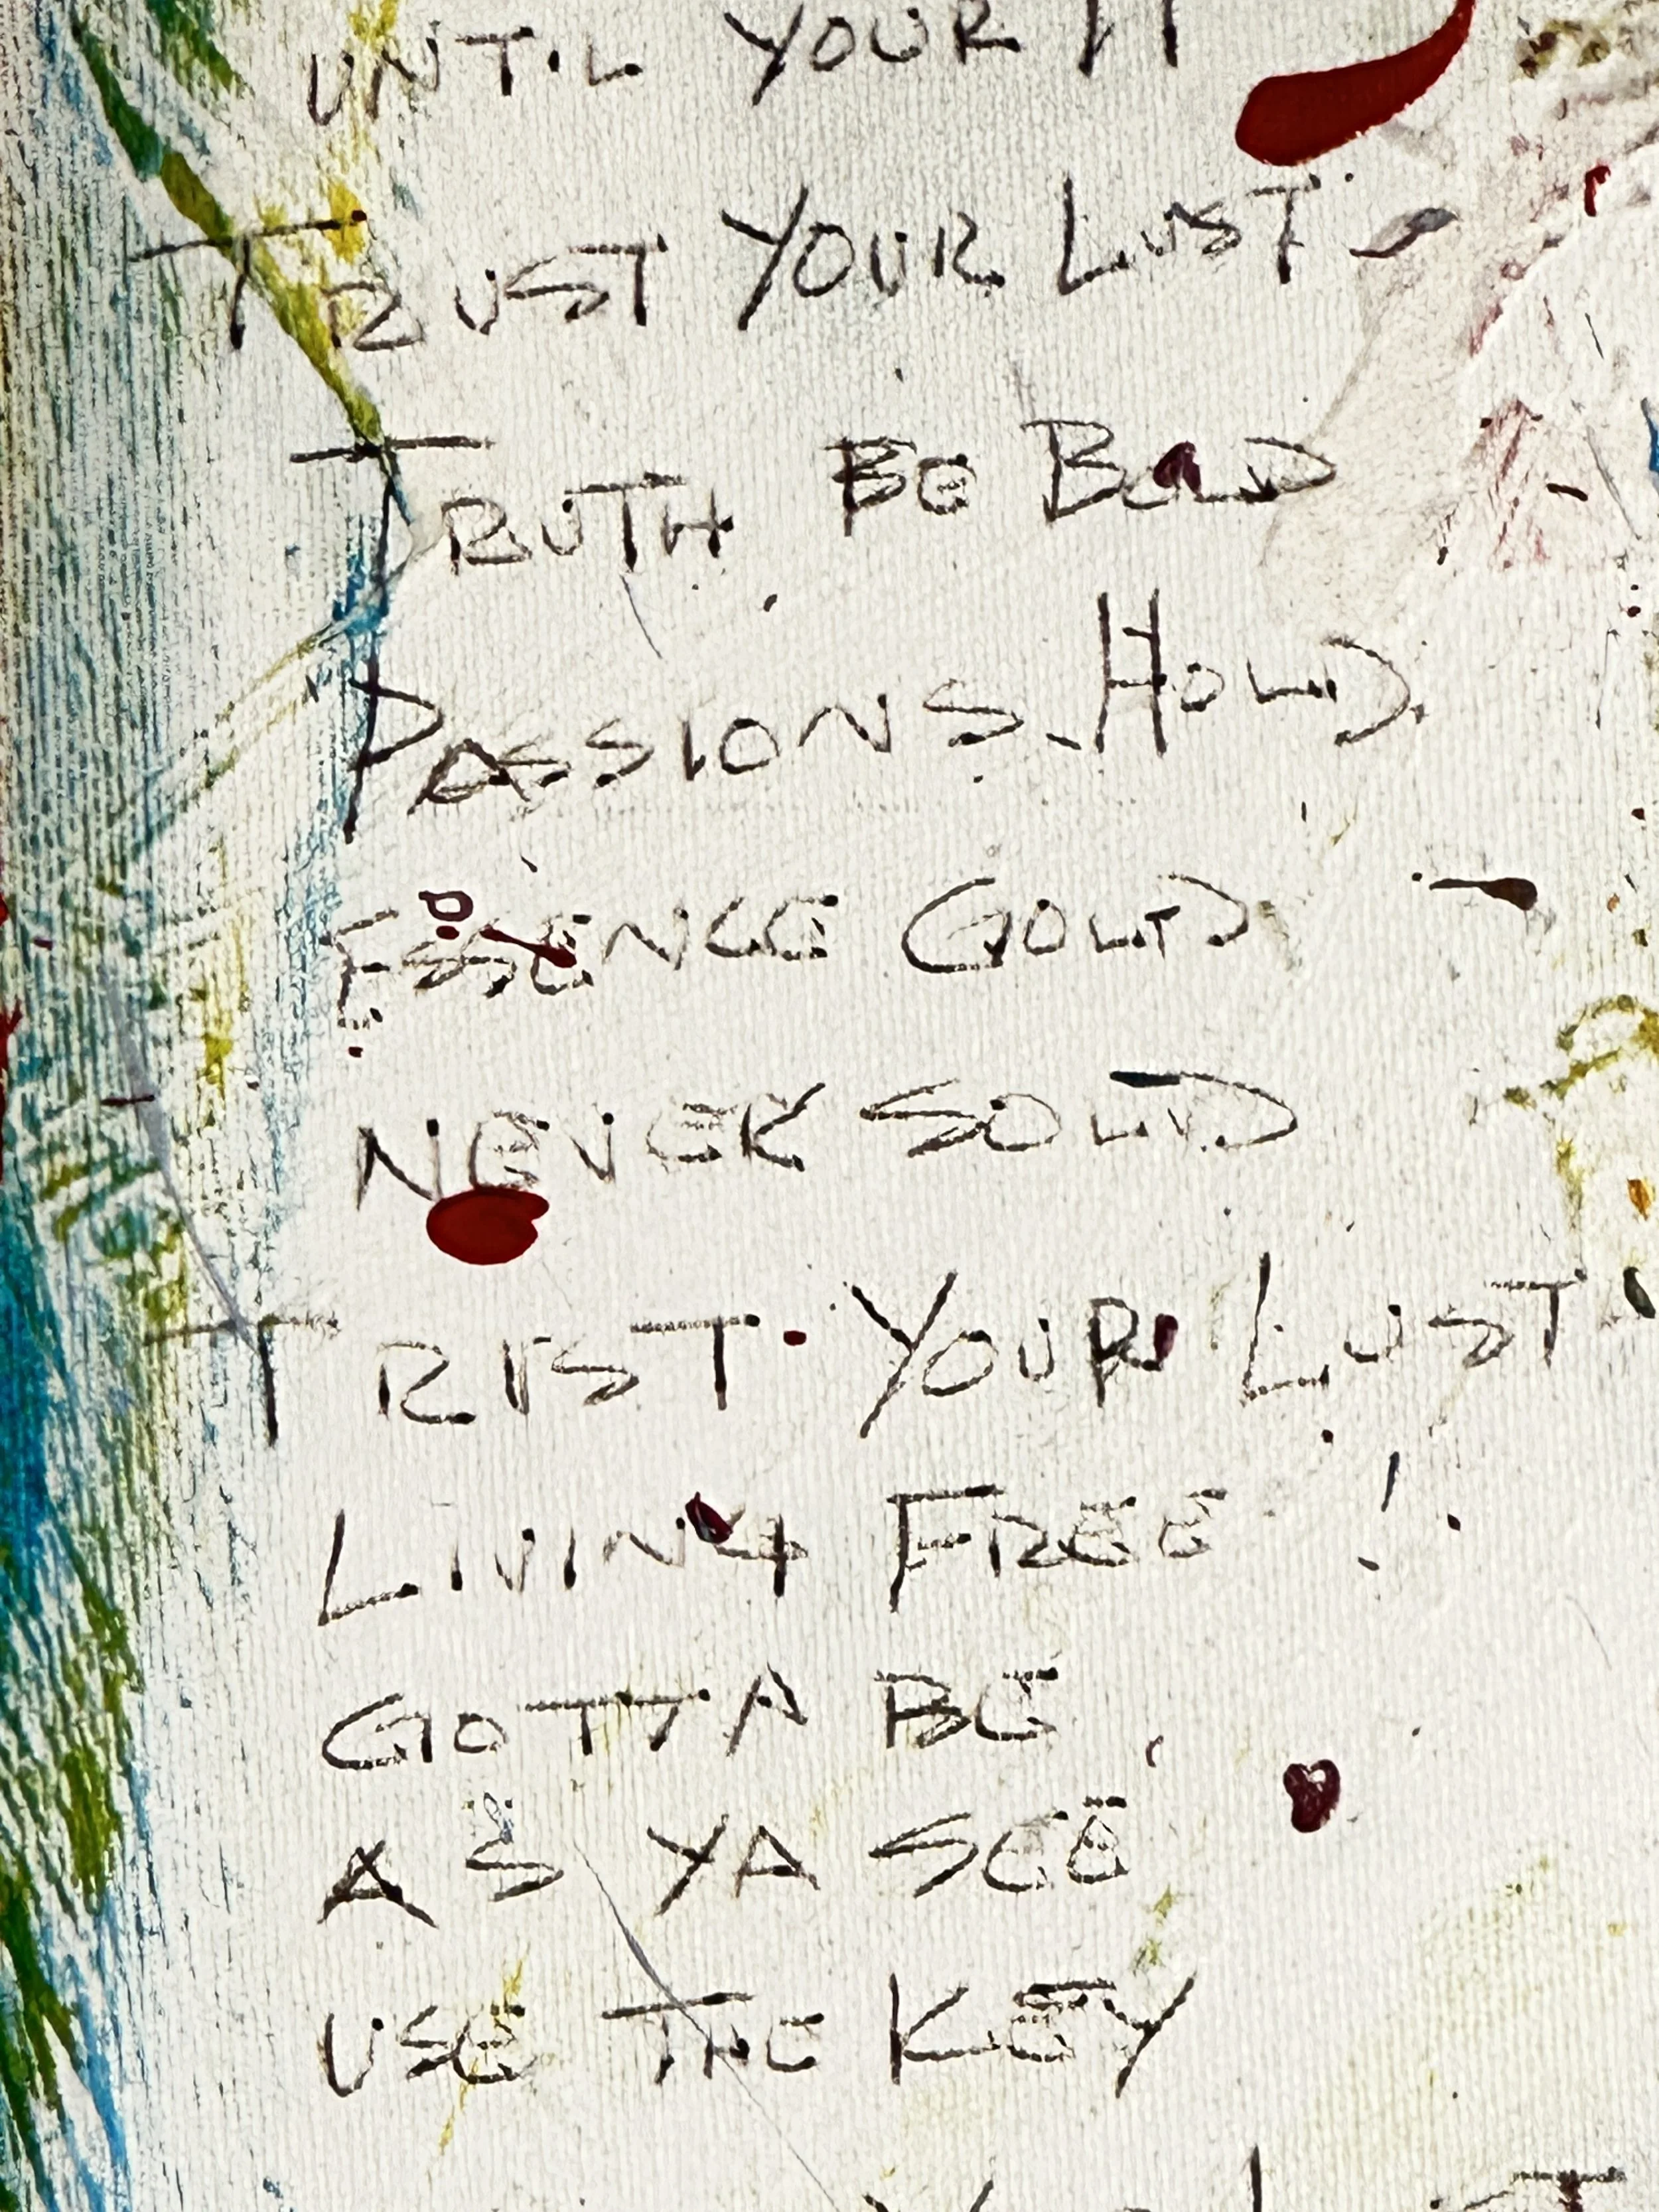 UNTIL YOUR
TRUST YOUR LUST
TRUTH BE BOLD
PASSIONS HOLD
ESSENCE GOLD
NEVER SOLD
TRUST YOUR LUST
LIVING FREE!
GOTTA BE
AS YA SEE
USE THE KEY